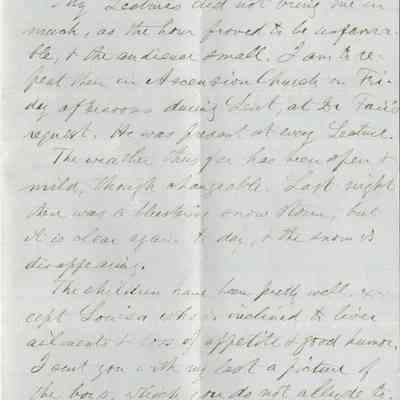 My Lectures did not bring me in
much, as the hour proved to be unfavora-
ble, & the audience small. I am to re-
peat them in Ascension Church on Fri-
day afternoons during Lent, at Dr Fair's
request. He was present at every Lecture.
The weather thus far has been open &
mild, though changeable. Last night
there was a blustering snow storm, but
it is clear again to day, & the snow is
disappearing.
The children have been pretty well, ex-
cept Louisa who is inclined to liver
ailments & loss of appetite & good humor.
I sent you with my last a picture of
the boys, which you do not allude to.